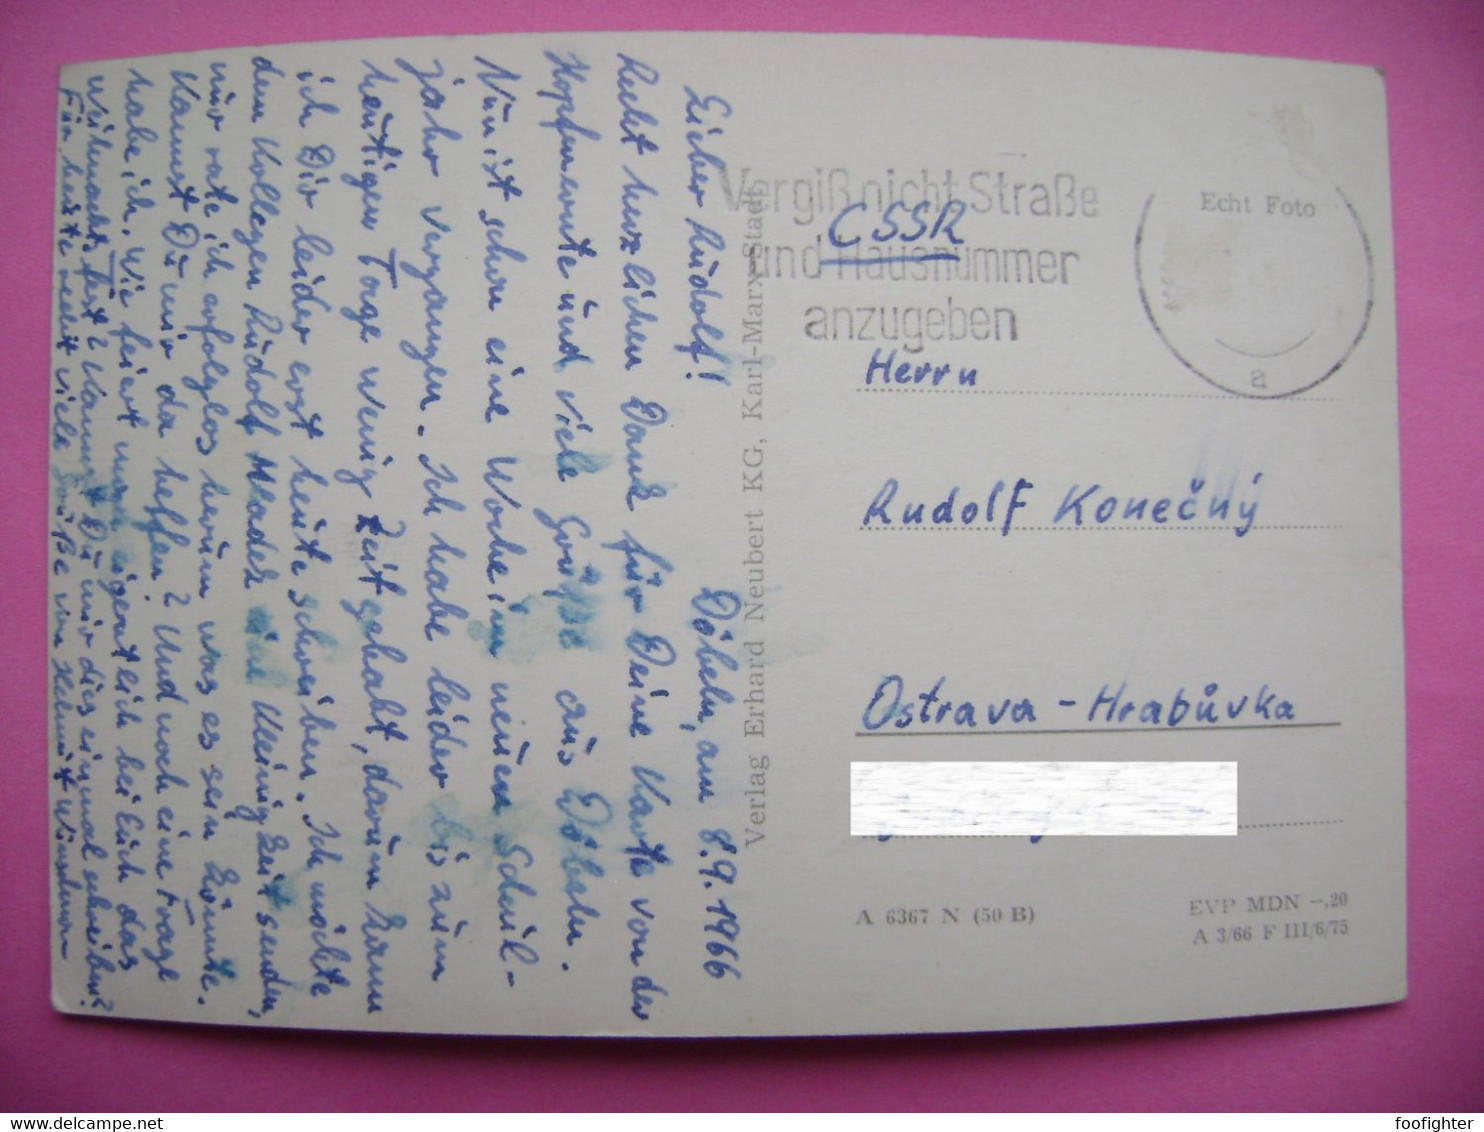 Döbeln, am 8.9.1966
Lieber Rudolf!
Recht herzlichen Dank für Deine Karte von der
Hopfenernte und viele Grüße aus Döbeln.
Nun ist schon eine Woche im neuen Schul-
jahr vergangen. Ich habe leider bis zum
heutigen Tage wenig Zeit gehabt, darum kann
ich Dir leider erst heute schreiben. Ich möchte
dem Kollegen Rudolf Mladek eine Kleinigkeit senden,
nur rate ich erfolglos herum was es sein könnte.
Kannst Du mir da helfen? Und noch eine Frage
habe ich. Wie feiert man eigentlich bei Euch das
Weihnachtsfest? Kannst Du mir dies einmal schreiben?
Für heute seien viele Grüße von Helmut
Verlag Erhard Neubert KG, Karl-Marx-Stadt
Vergiß nicht Straße
und Hausnummer
anzugeben
CSSR
Echt Foto
a
Herrn
Rudolf Konečný
Ostrava - Hrabůvka
A 6367 N (50 B)
EVP MDN -,20
A 3/66 F III/6/75
foofighter
www.delcampe.net